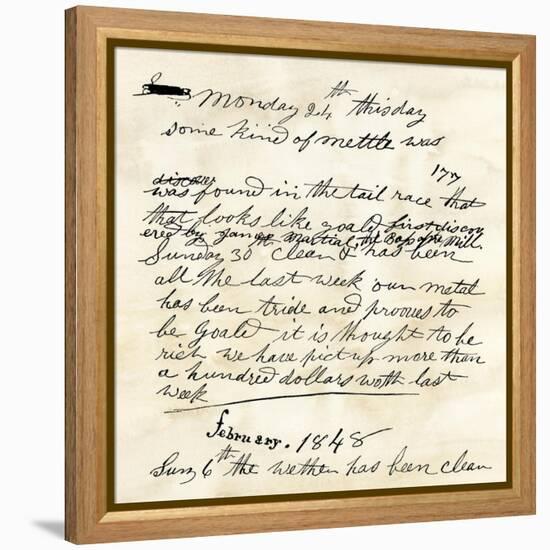 Monday 24th this day
some kind of mettle was
177
discover
was found in the tail race that
that looks like goald first discov
ered by James Martial, the Boss of the Mill.
Sunday 30 clean & has been
all the last week our metal
has been tride and prooves to
be goald it is thought to be
rich we have pict up more than
a hundred dollars woth last
week
february. 1848
Sun 6th the wether has been clean